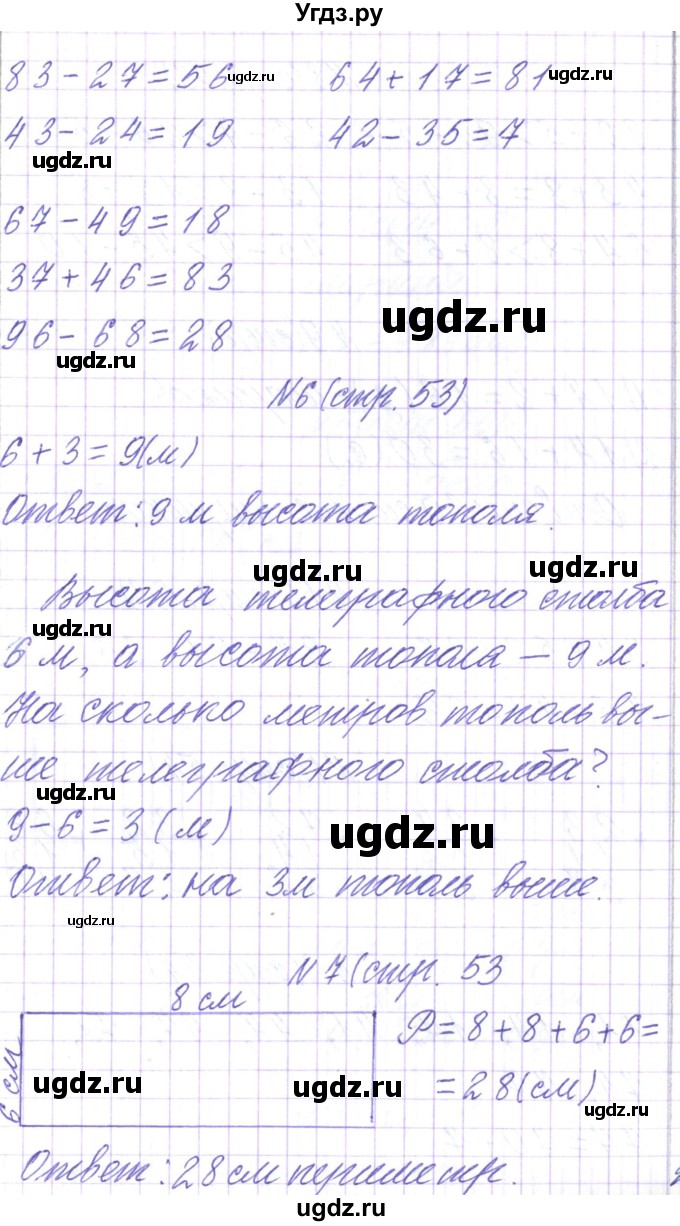 Угдз.ру
83-27=56 ugdz.ru 64+17=81 ugdz.ru
43-24=19 42-35=7
ugdz.ru
67-49=18
37+46=83
ugdz.ru
96-68=28
ugdz.ru
N6 (стр. 53)
6+3=9(м)
Ответ: 9 м высота тополя.
ugdz.ru ugdz.ru
Высота телеграфного столба
ugdz.ru
6 м, а высота тополя – 9 м.
На сколько метров тополь вы-
ше телеграфного столба?
ugdz.ru
9-6=3 (м)
ugdz.ru
Ответ: на 3м тополь выше.
ugdz.ru
N 7 (стр. 53
8 см
6 см
P=8+8+6+6=
=28(см)
ugdz.ru ugdz.ru ugdz.ru
Ответ: 28 см периметр.
ugdz.ru